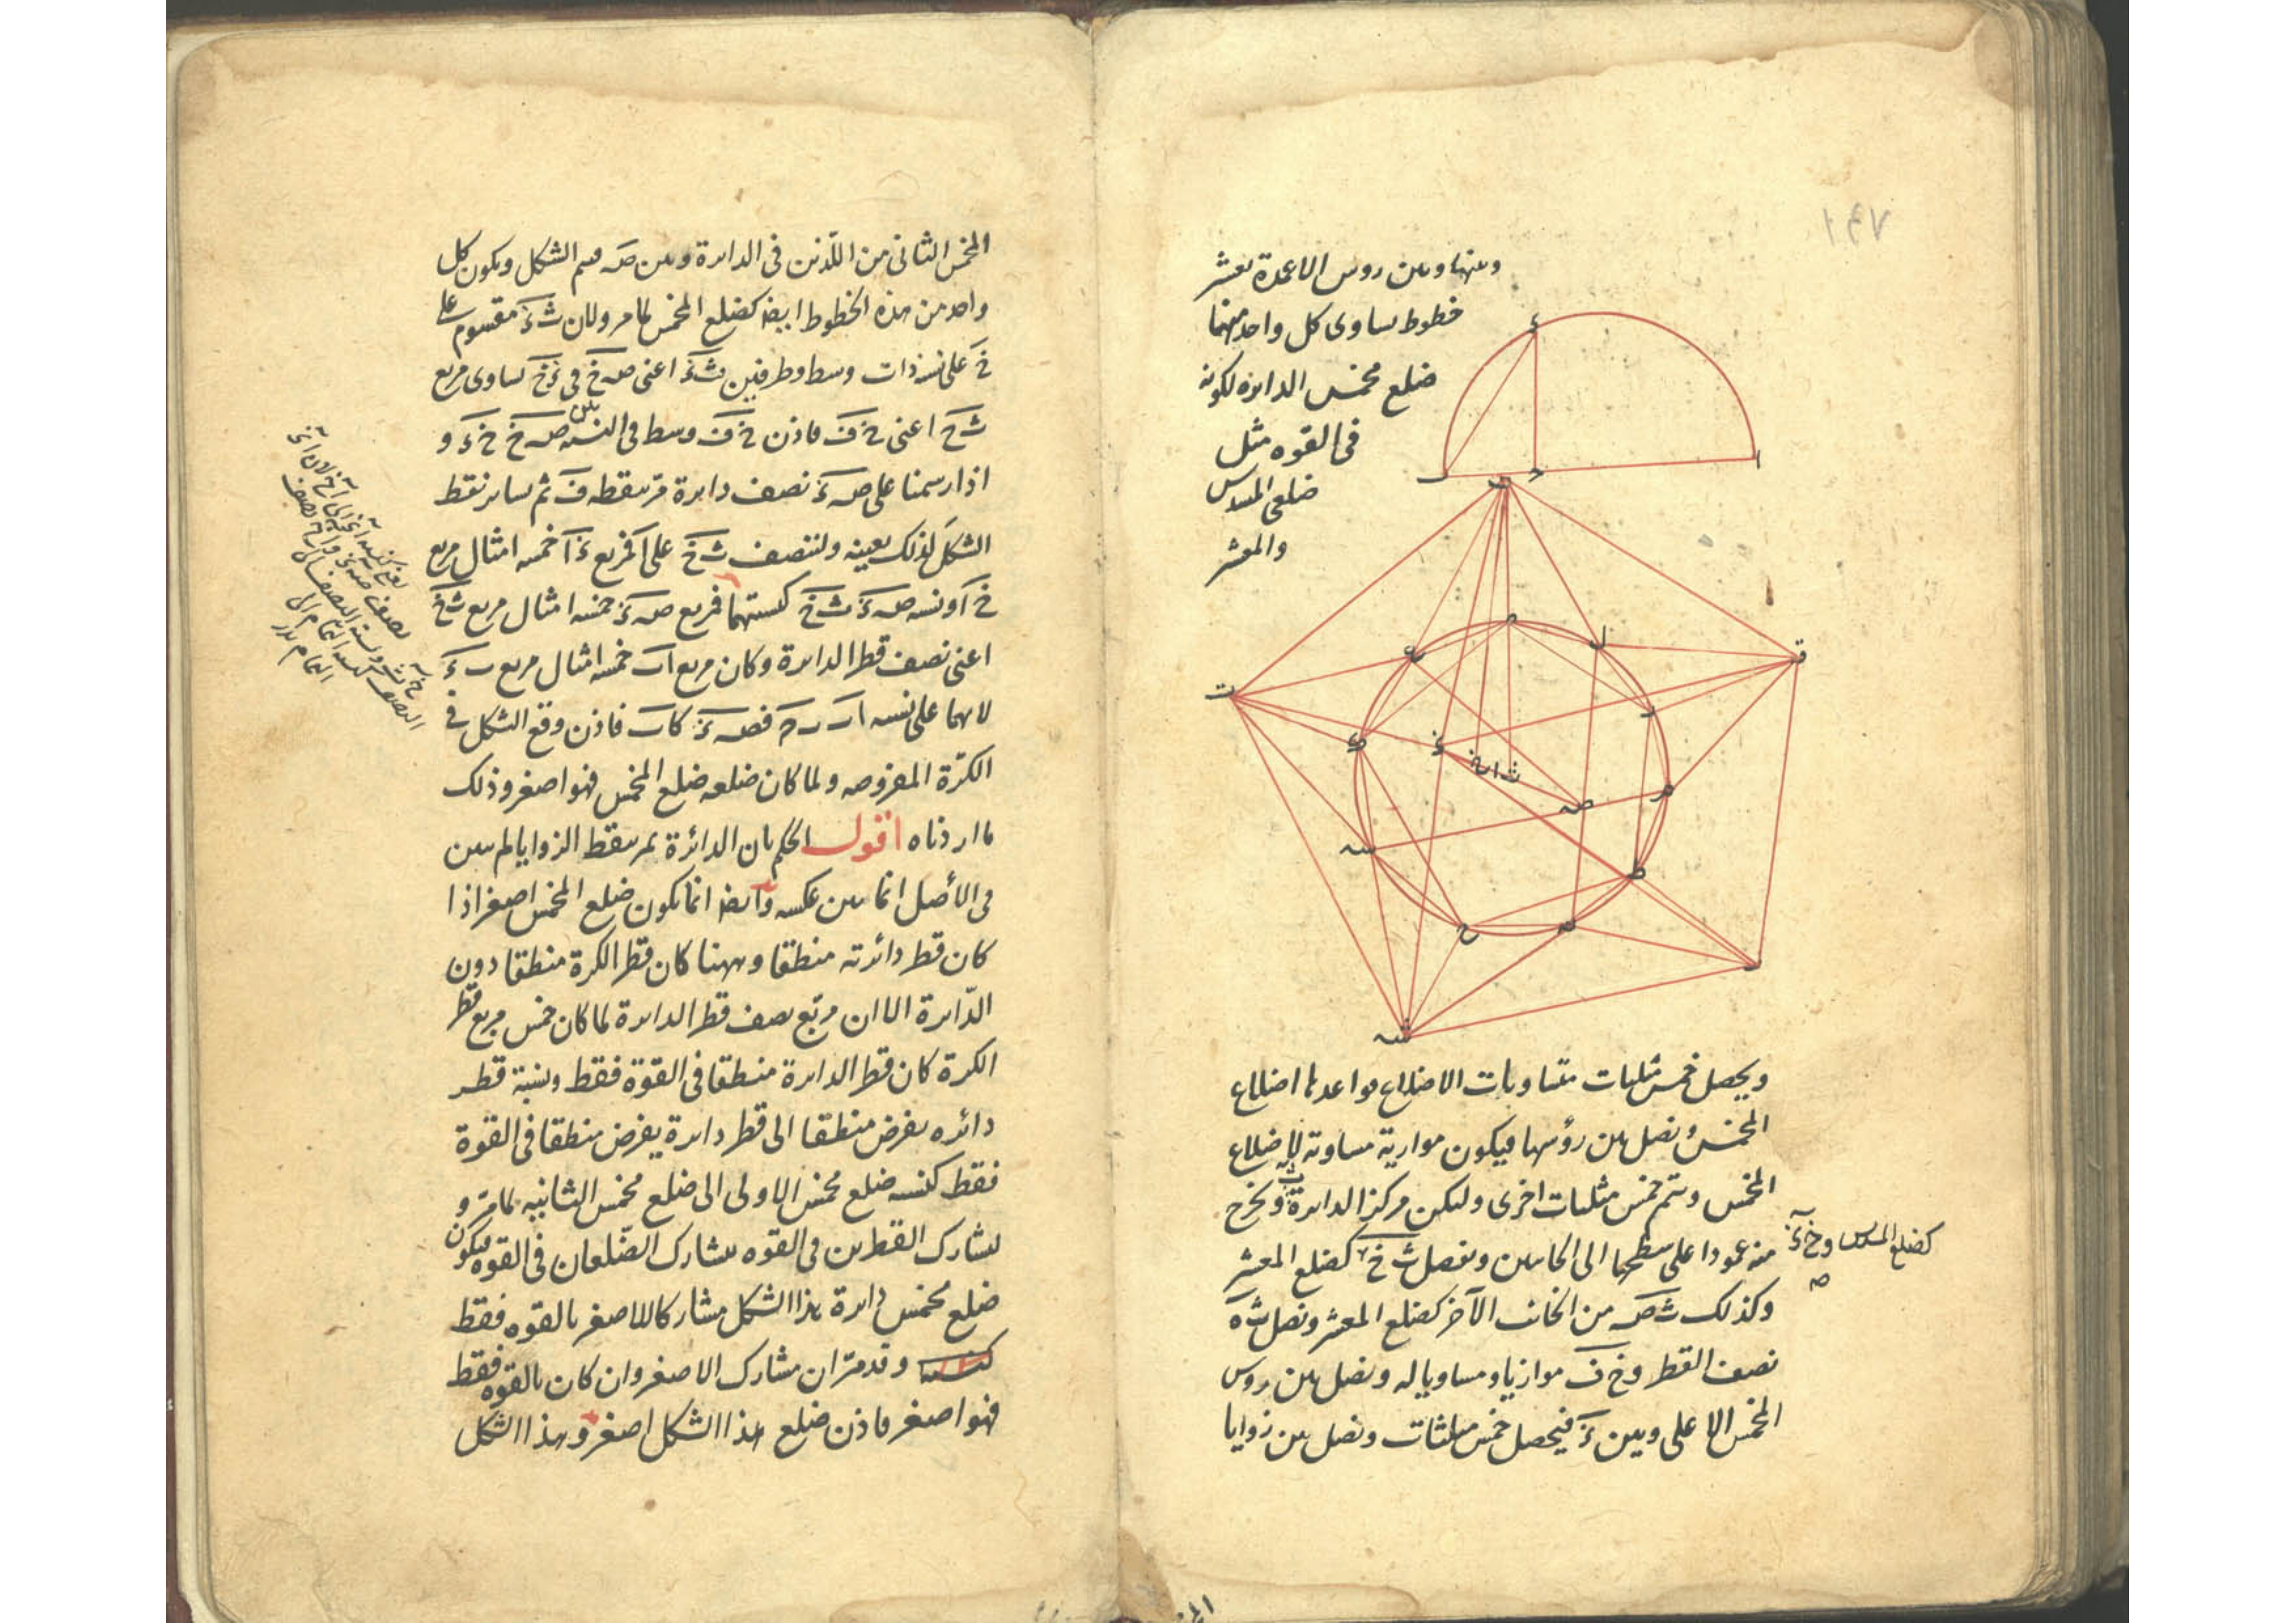 وبينها وبين رؤس الاعمدة بعشر
خطوط يساوى كل واحد منهما
ضلع مخمس الدايرة لكونه
فى القوه مثل
ضلعى المسدس
والمعشر
ويحصل خمس مثلثات متساويات الاضلاع قواعدها اضلاع
المخمس ونصل بين رؤسها فيكون موازية مساوية لاضلاع
المخمس ويتم خمس مثلثات اخرى وليكن مركز الدايرة ث ونخرج
منه عمودا على سطحها الى الجانبين ونفصل ث خ كضلع المعشر
كضلع المسدس و خ
وكذلك ث صہ من الجانب الآخر كضلع المعشر ونصل ث ه
نصف القطر و خ ف موازيا ومساويا له ونصل بين روس
المخمس الاعلى وبين ءَ فيحصل خمس مثلثات ونصل بين زوايا
المخمس الثانى من اللذين فى الدايرة وبين صہ فيتم الشكل ويكون كل
واحد من هذه الخطوط ايضا كضلع المخمس لما مر ولان ث ءَ مقسوم على
خ على نسبة ذات وسط وطرفين ث ءَ اعنى صہ خ فى ءَ خ يساوى مربع
ث خ اعنى خ ف فاذن خ ف وسط فى النسبة بين صہ خ خ ءَ و
اذا رسمنا على صہ ءَ نصف دايرة مر بنقطه ف ثم بساير نقط
الشكل لذلك بعينه ولننصف ث خ على آ فمربع ءَ آ خمسة امثال مربع
خ آ ونسبة صہ ءَ ث خ كنسبتهما فمربع صہ ءَ خمسة امثال مربع ث خ
اعنى نصف قطر الدايرة وكان مربع ا ب خمسة امثال مربع ب ءَ
لانهما على نسبة ا ب ب ح فصہ ءَ كاب فاذن وقع الشكل فى
الكرة المفروضه ولما كان ضلعه ضلع المخمس فهو اصغر وذلك
ما اردناه اقول الحكم بان الدائرة يمر بنقط الزوايا لم يبين
فى الأصل انما بين عكسه وايضا انما يكون ضلع المخمس اصغر اذا
كان قطر دائرته منطقا وههنا كان قطر الكرة منطقا دون
الدّايرة الا ان مربّع نصف قطر الدايرة لما كان خمس مربع قطر
الكرة كان قطر الدايرة منطقا فى القوة فقط ونسبة قطر
دائره يفرض منطقا الى قطر دايرة يفرض منطقا فى القوة
فقط كنسبة ضلع مخمس الاولى الى ضلع مخمس الثانيه لما مرّ و
لتشارك القطرين فى القوه يتشارك الضّلعان فى القوه فيكون
ضلع مخمس دايرة هذا الشكل مشاركا للاصغر بالقوه فقط
وقد مرّ ان مشارك الاصغر وان كان بالقوه فقط
فهو اصغر فاذن ضلع هذا الشكل اصغر وهذا الشكل